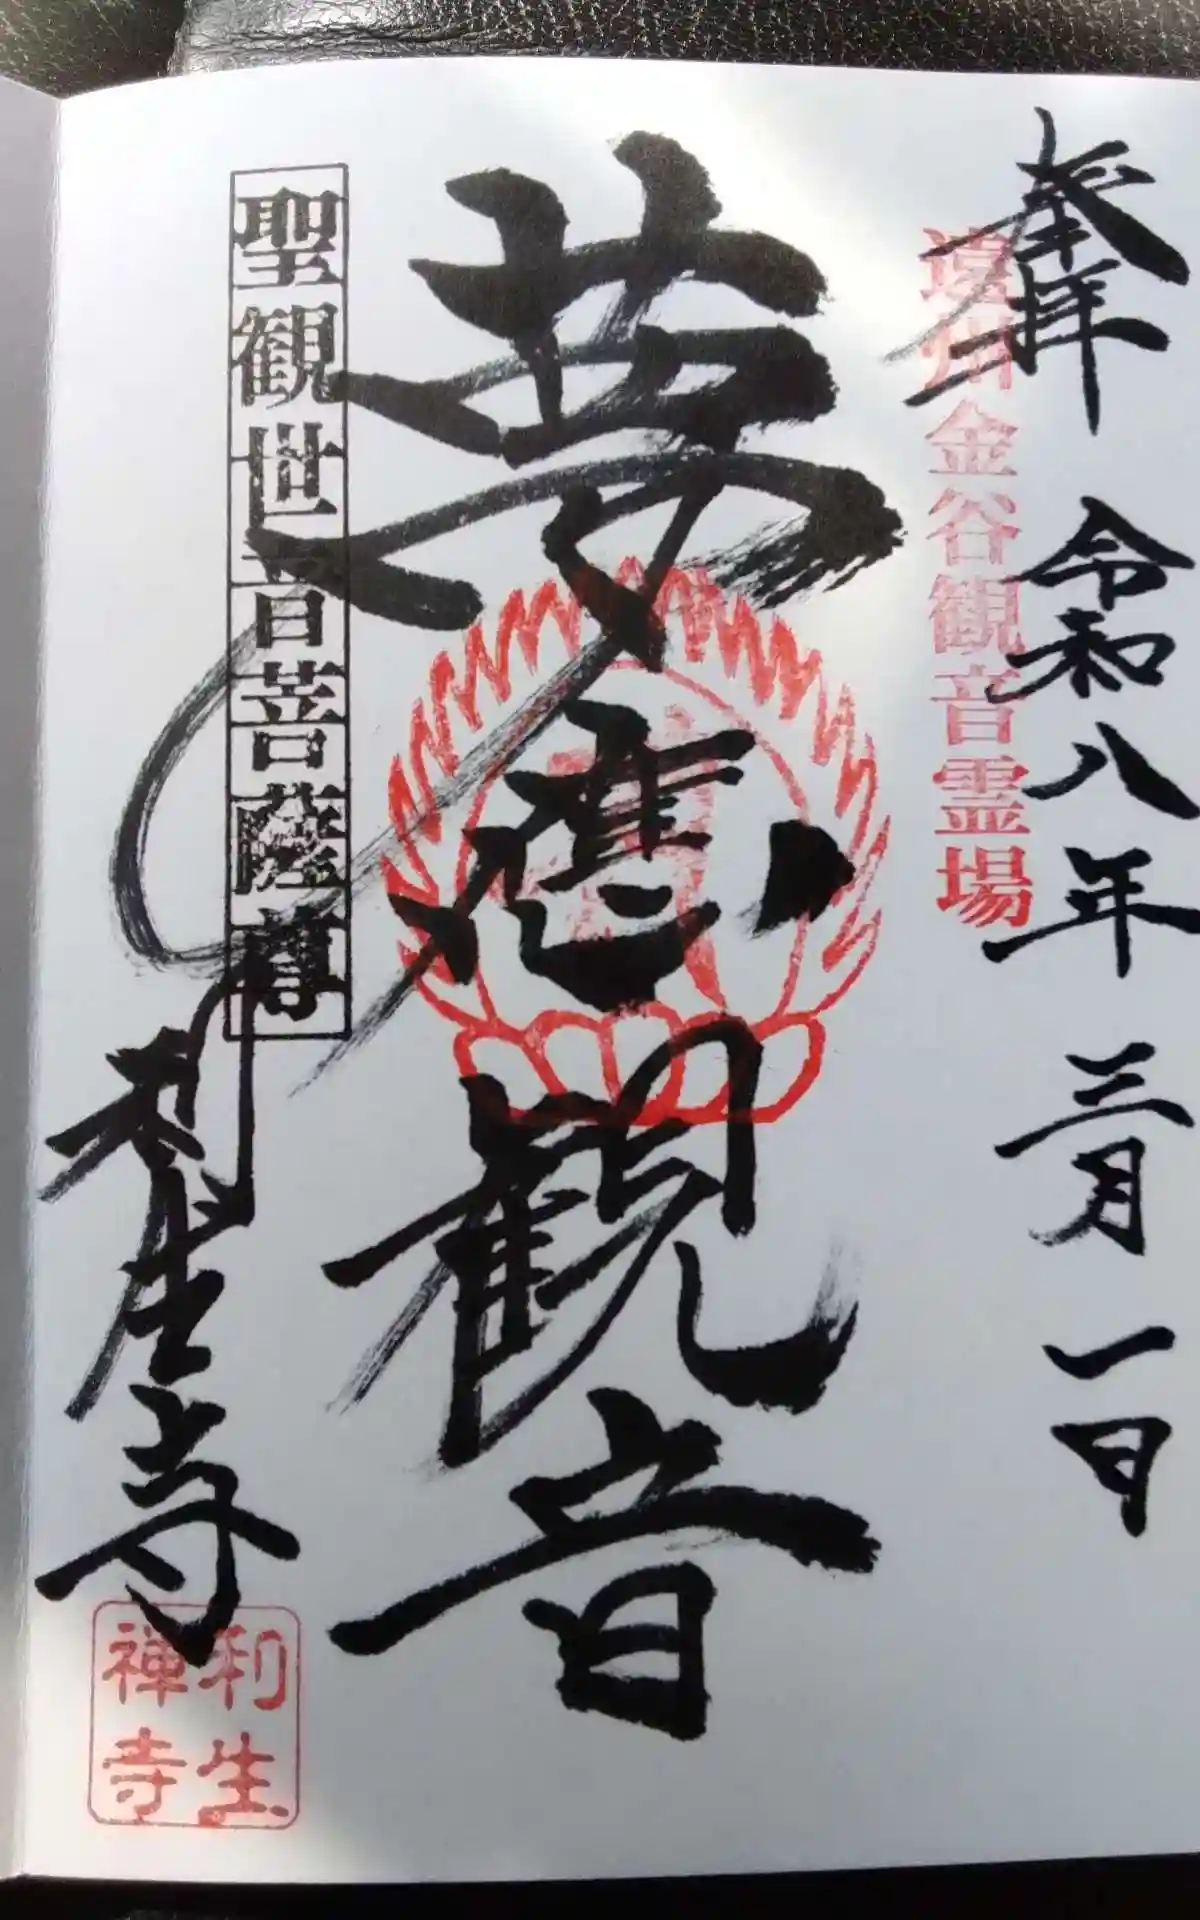 奉拝 令和八年三月一日
遠州金谷観音霊場
夢應観音
聖観世音菩薩尊
利生寺
利生
禅寺